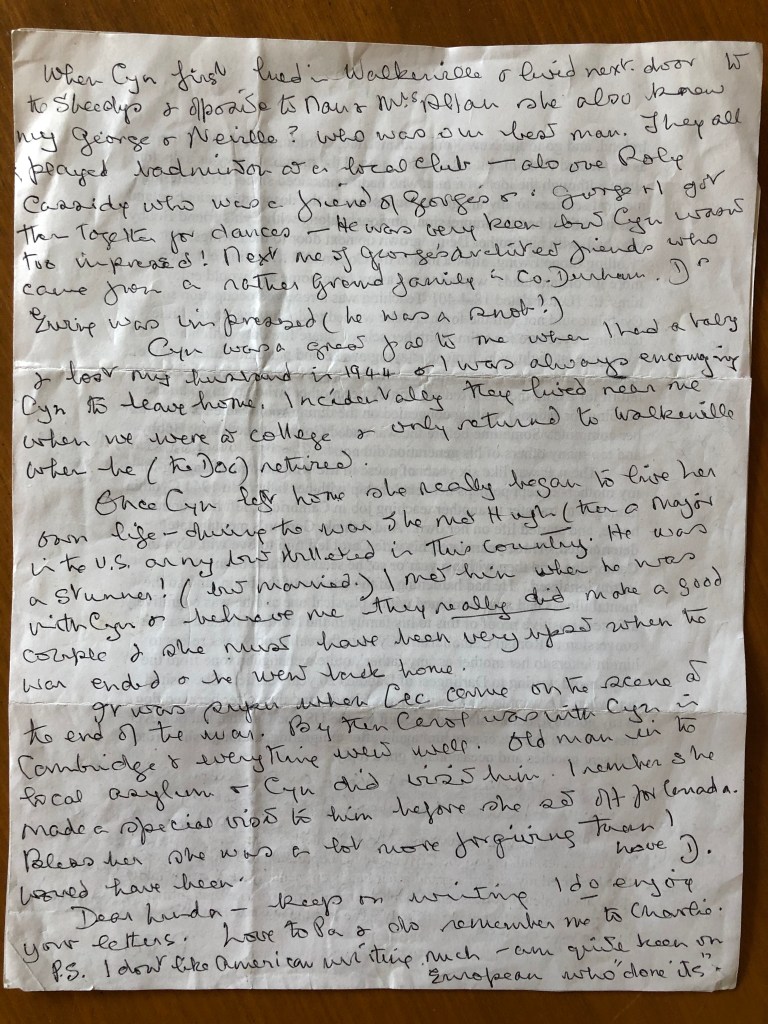 When Cyn first lived in Walkerville & lived next door to
to Sheedys & opposite to Nan & Mrs Allan she also knew
my George & Neville? who was our best man. They all
played badminton at a local club – also one Roly
Cassidy who was a friend of George's & George & I got
them together for dances – He was very keen but Cyn wasn't
too impressed! Next one of George's architect friends who
came from a rather Grand family in Co. Durham. Dr
Ewing was impressed (he was a snob!)
Cyn was a great pal to me when I had a baby
& lost my husband in 1944 & I was always encouraging
Cyn to leave home. Incidentally they lived near me
when we were at college & only returned to Walkerville
when he (the Doc) retired.
Once Cyn left home she really began to live her
own life – during the war she met Hugh (then a Major
in the U.S. army but billeted in this country. He was
a stunner! (but married.) I met him when he was
with Cyn & believe me they really did make a good
couple & she must have been very upset when the
war ended & he went back home.
It was when Cec came on the scene at
the end of the war. By then Carol was with Cyn in
Cambridge & everything went well. Old man in the
local asylum & Cyn did visit him. I remember she
made a special visit to him before she set off for Canada.
Bless her she was a lot more forgiving than I
would have been. Love D.
Dear Linda – keep on writing I do enjoy
your letters. Love to Pa & do remember me to Charlie.
P.S. I don't like American writing much – am quite keen on
European who "done its".